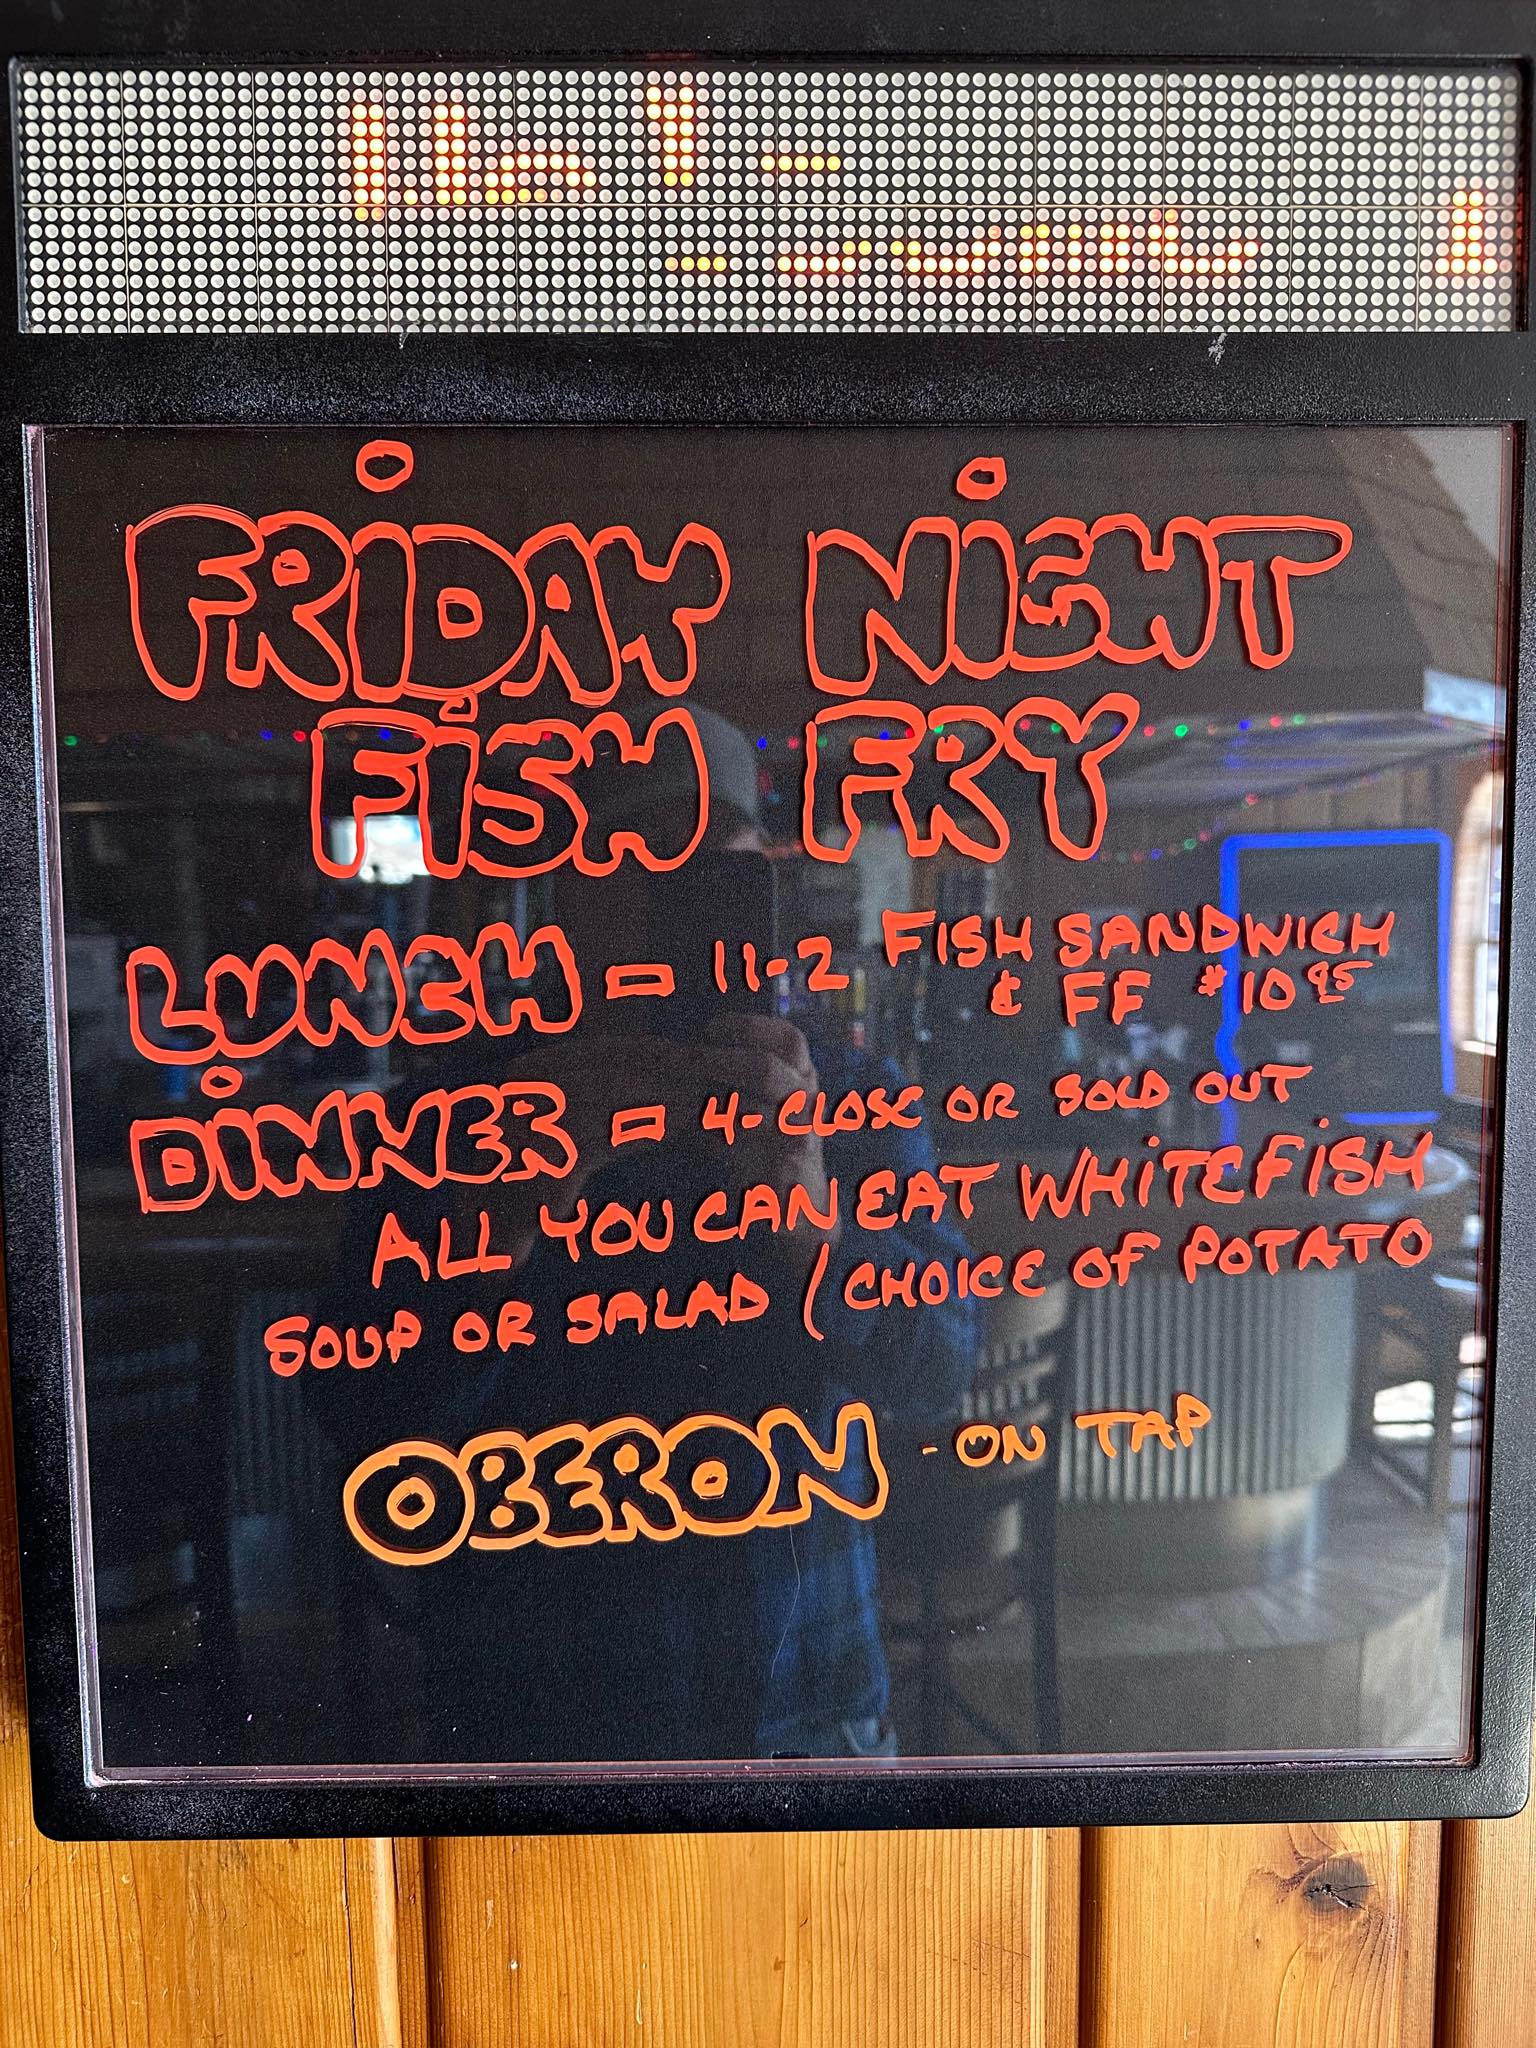 FRiDAY NiGHT
FiSH FRY
LUNCH - 11-2 FISH SANDWICH
& FF $10 95
DiNNER - 4-CLOSE OR SOLD OUT
ALL YOU CAN EAT WHiTEFiSH
SOUP OR SALAD / CHOICE OF POTATO
OBERON - ON TAP